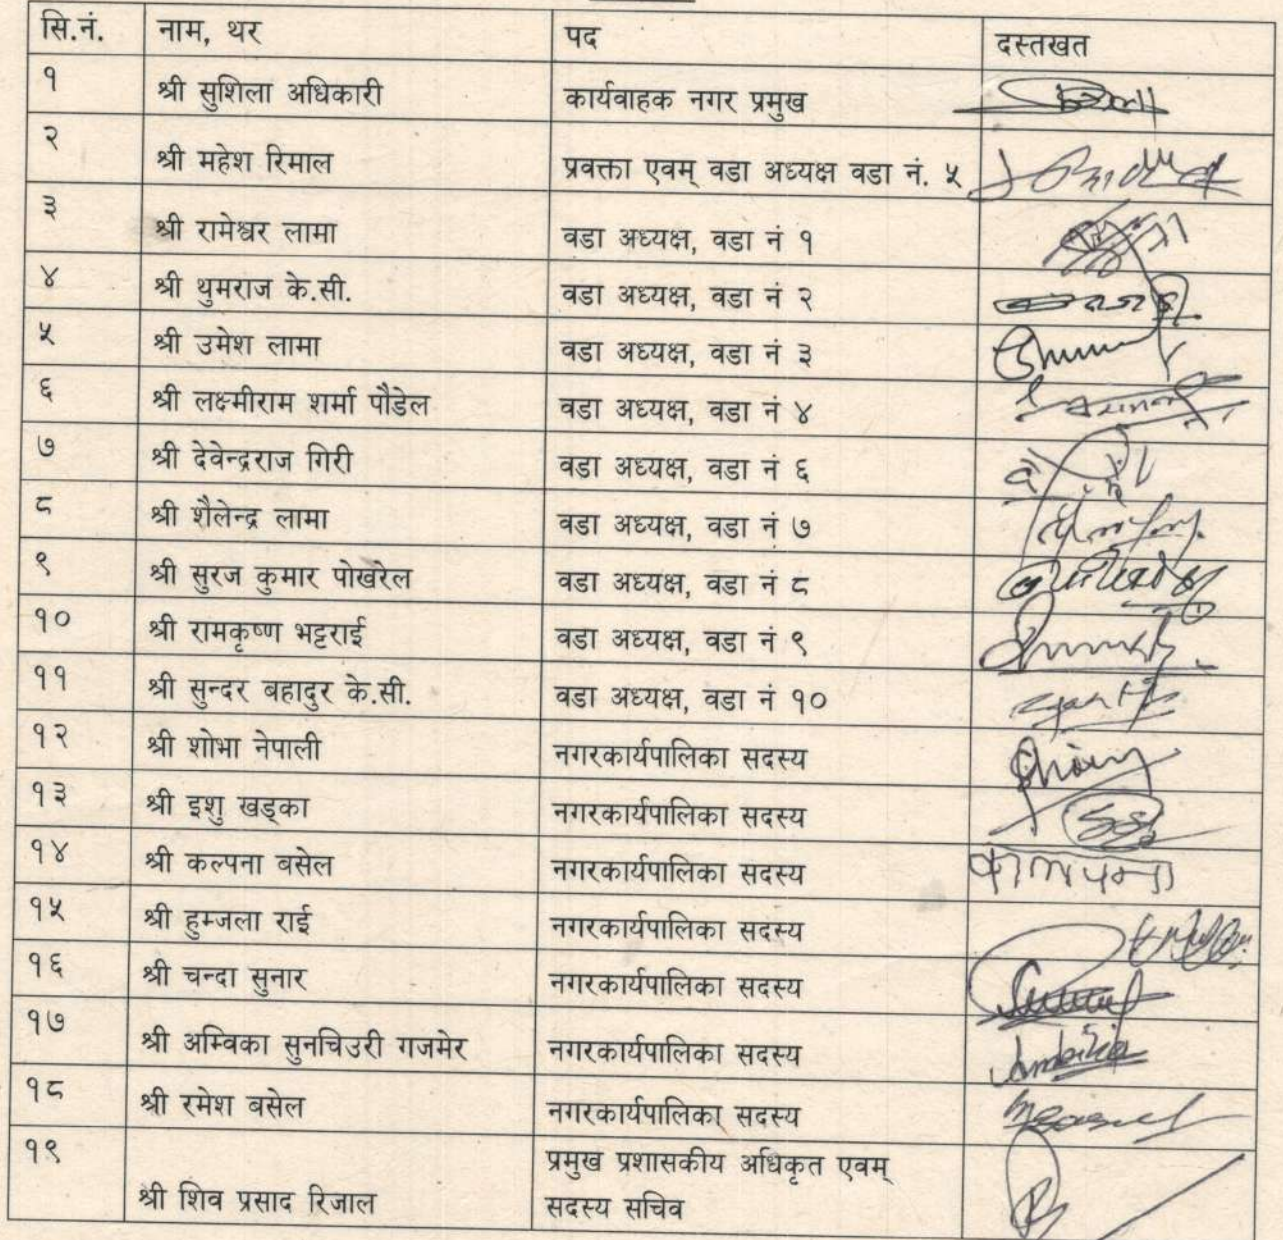 सि.नं. नाम, थर पद दस्तखत
१ श्री सुशिला अधिकारी कार्यवाहक नगर प्रमुख
२ श्री महेश रिमाल प्रवक्ता एवम् वडा अध्यक्ष वडा नं. ५
३ श्री रामेश्वर लामा वडा अध्यक्ष, वडा नं १
४ श्री थुमराज के.सी. वडा अध्यक्ष, वडा नं २
५ श्री उमेश लामा वडा अध्यक्ष, वडा नं ३
६ श्री लक्ष्मीराम शर्मा पौडेल वडा अध्यक्ष, वडा नं ४
७ श्री देवेन्द्रराज गिरी वडा अध्यक्ष, वडा नं ६
८ श्री शैलेन्द्र लामा वडा अध्यक्ष, वडा नं ७
९ श्री सुरज कुमार पोखरेल वडा अध्यक्ष, वडा नं ८
१० श्री रामकृष्ण भट्टराई वडा अध्यक्ष, वडा नं ९
११ श्री सुन्दर बहादुर के.सी. वडा अध्यक्ष, वडा नं १०
१२ श्री शोभा नेपाली नगरकार्यपालिका सदस्य
१३ श्री इशु खड्का नगरकार्यपालिका सदस्य
१४ श्री कल्पना बसेल नगरकार्यपालिका सदस्य
१५ श्री हुम्जला राई नगरकार्यपालिका सदस्य
१६ श्री चन्दा सुनार नगरकार्यपालिका सदस्य
१७ श्री अम्विका सुनचिउरी गजमेर नगरकार्यपालिका सदस्य
१८ श्री रमेश बसेल नगरकार्यपालिका सदस्य
१९ श्री शिव प्रसाद रिजाल प्रमुख प्रशासकीय अधिकृत एवम्
सदस्य सचिव